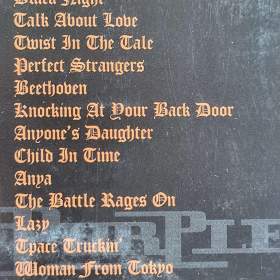 Black Night
Talk About Love
Twist In The Tale
Perfect Strangers
Beethoven
Knocking At Your Back Door
Anyone's Daughter
Child In Time
Anya
The Battle Rages On
Lazy
PURPLE
Tpace Truckin'
Woman From Tokyo